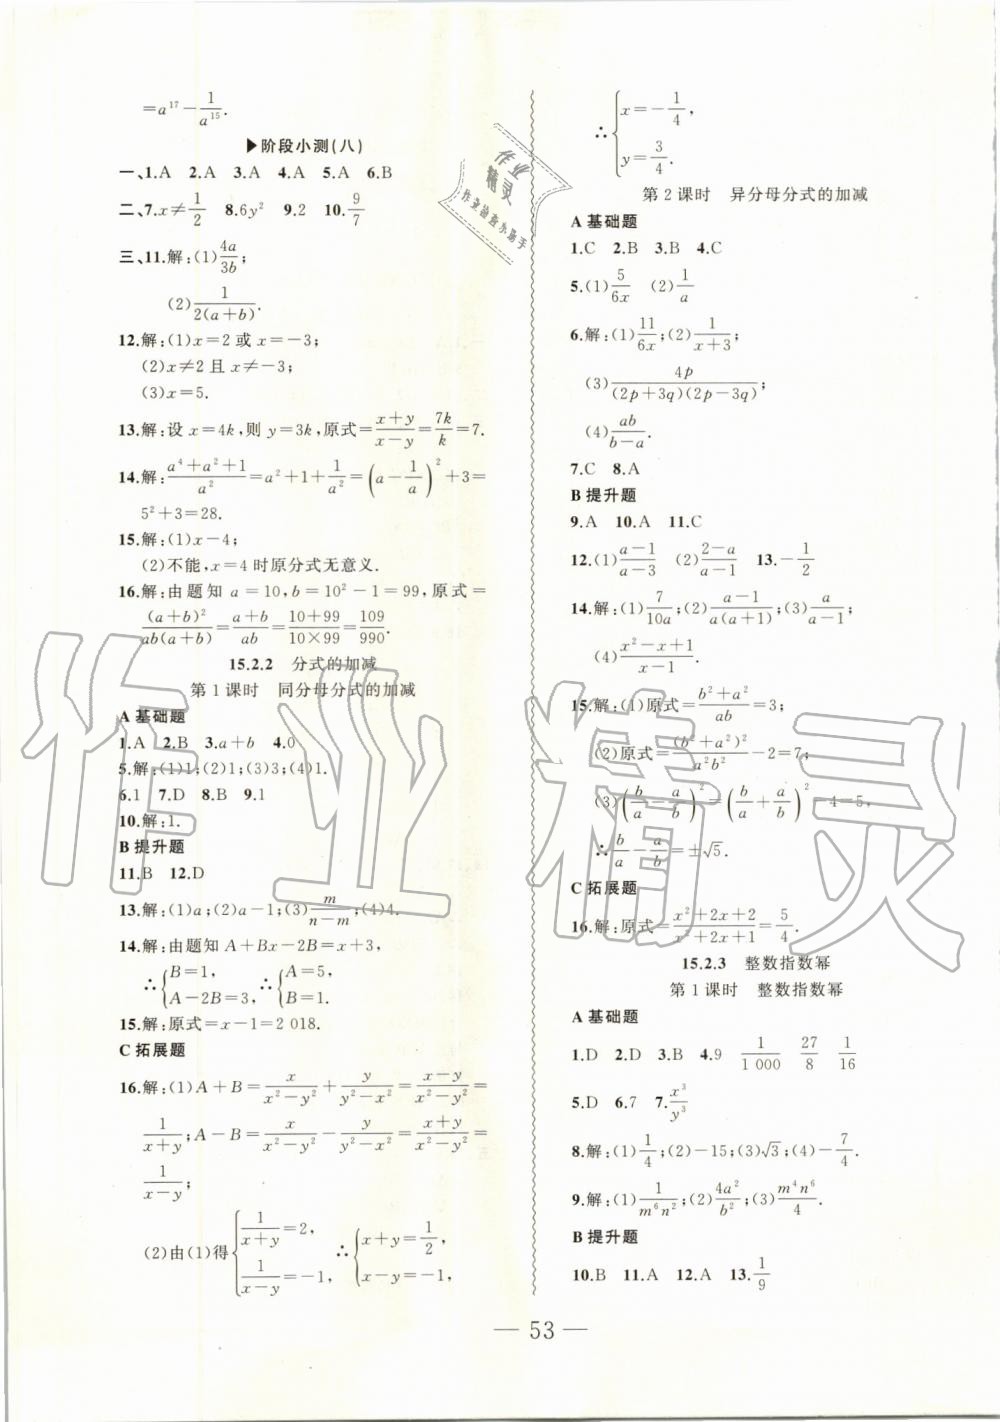 =a¹⁷-1/a¹⁵.
▶阶段小测(八)
一、1.A 2.A 3.A 4.A 5.A 6.B
二、7.x≠1/2 8.6y² 9.2 10.9/7
三、11.解:(1)4a/3b;
(2)1/2(a+b).
12.解:(1)x=2或x=-3;
(2)x≠2且x≠-3;
(3)x=5.
13.解:设x=4k,则y=3k,原式=(x+y)/(x-y)=7k/k=7.
14.解:(a⁴+a²+1)/a²=a²+1+1/a²=(a-1/a)²+3=
5²+3=28.
15.解:(1)x-4;
(2)不能,x=4时原分式无意义.
16.解:由题知a=10,b=10²-1=99,原式=
(a+b)²/ab(a+b)=(a+b)/ab=(10+99)/(10×99)=109/990.
15.2.2 分式的加减
第1课时 同分母分式的加减
A 基础题
1.A 2.B 3.a+b 4.0
5.解:(1)1;(2)1;(3)3;(4)1.
6.1 7.D 8.B 9.1
10.解:1.
B 提升题
11.B 12.D
13.解:(1)a;(2)a-1;(3)m/(n-m);(4)4.
14.解:由题知A+Bx-2B=x+3,
∴{B=1, A-2B=3, ∴{A=5, B=1.
15.解:原式=x-1=2 018.
C 拓展题
16.解:(1)A+B=x/(x²-y²)+y/(y²-x²)=(x-y)/(x²-y²)=
1/(x+y);A-B=x/(x²-y²)-y/(y²-x²)=(x+y)/(x²-y²)=
1/(x-y);
(2)由(1)得{1/(x+y)=2, 1/(x-y)=-1, ∴{x+y=1/2, x-y=-1,
∴{x=-1/4, y=3/4.
第2课时 异分母分式的加减
A 基础题
1.C 2.B 3.B 4.C
5.(1)5/6x (2)1/a
6.解:(1)11/6x;(2)1/(x+3);
(3)4p/(2p+3q)(2p-3q);
(4)ab/(b-a).
7.C 8.A
B 提升题
9.A 10.A 11.C
12.(1)(a-1)/(a-3) (2)(2-a)/(a-1) 13.-1/2
14.解:(1)7/10a;(2)(a-1)/a(a+1);(3)a/(a-1);
(4)(x²-x+1)/(x-1).
15.解:(1)原式=(b²+a²)/ab=3;
(2)原式=(b²+a²)²/a²b²-2=7;
(3)(b/a-a/b)²=(b/a+a/b)²-4=5,
∴b/a-a/b=±√5.
C 拓展题
16.解:原式=(x²+2x+2)/(x²+2x+1)=5/4.
15.2.3 整数指数幂
第1课时 整数指数幂
A 基础题
1.D 2.D 3.B 4.9 1/1 000 27/8 1/16
5.D 6.7 7.x³/y³
8.解:(1)1/4;(2)-15;(3)√3;(4)-7/4.
9.解:(1)1/m⁶n²;(2)4a²/b²;(3)m⁴n⁶/4.
B 提升题
10.B 11.A 12.A 13.1/9
— 53 —
作业
精灵
作业检查小助手
作业精灵